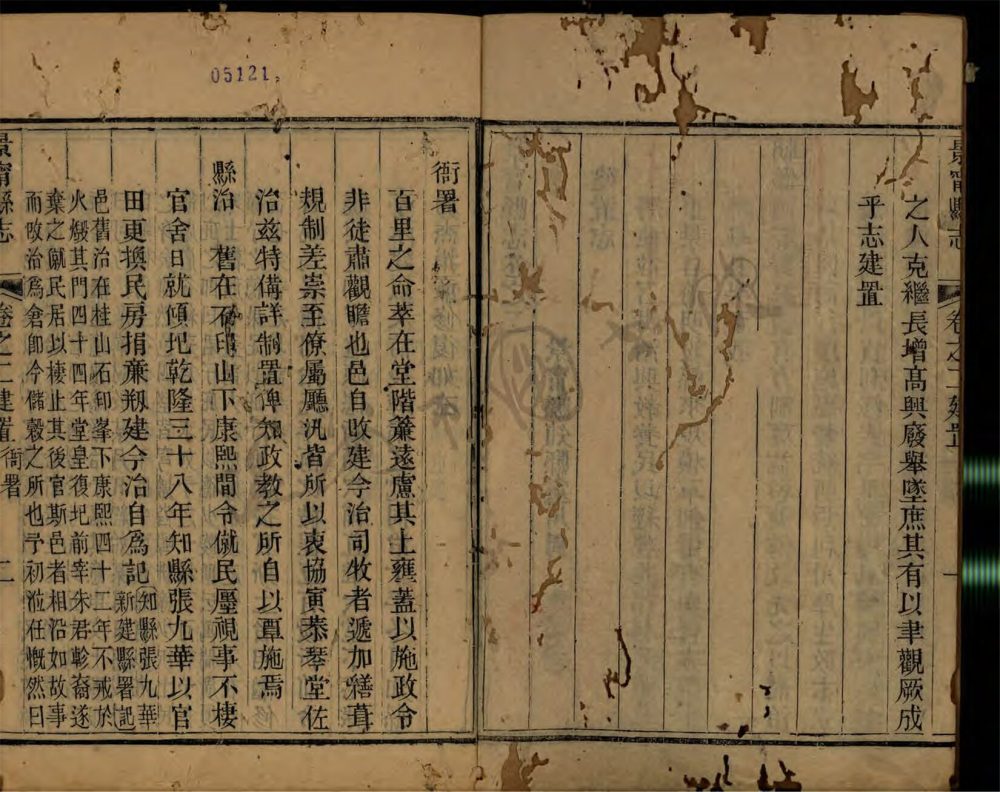 05121
景寧縣志
卷之二建置
之人克繼長增高興廢舉墜庶其有以聿觀厥成
乎志建置
衙署
百里之命萃在堂階簾遠慮其上壅蓋以施政令
非徒肅觀瞻也邑自改建今治司牧者遞加繕葺
規制差崇至僚屬廳汛皆所以衷協寅恭琴堂佐
治兹特備詳制置俾知政教之所自以覃施焉
縣治 舊在石印山下康熙間令僦民廛視事不棲
官舍日就傾圮乾隆三十八年知縣張九華以官
田更換民房捐亷剏建今治自爲記知縣張九華新建縣署記
邑舊治在桂山石印峯下康熙四十二年不戒於
火燬其門四十四年堂皇復圮前宰朱君軫裔遂
棄之僦民居以棲止其後官斯邑者相沿如故事
而改治爲倉卽今儲穀之所也予初涖任慨然曰
景甯縣志
卷之二建置
衙署
二